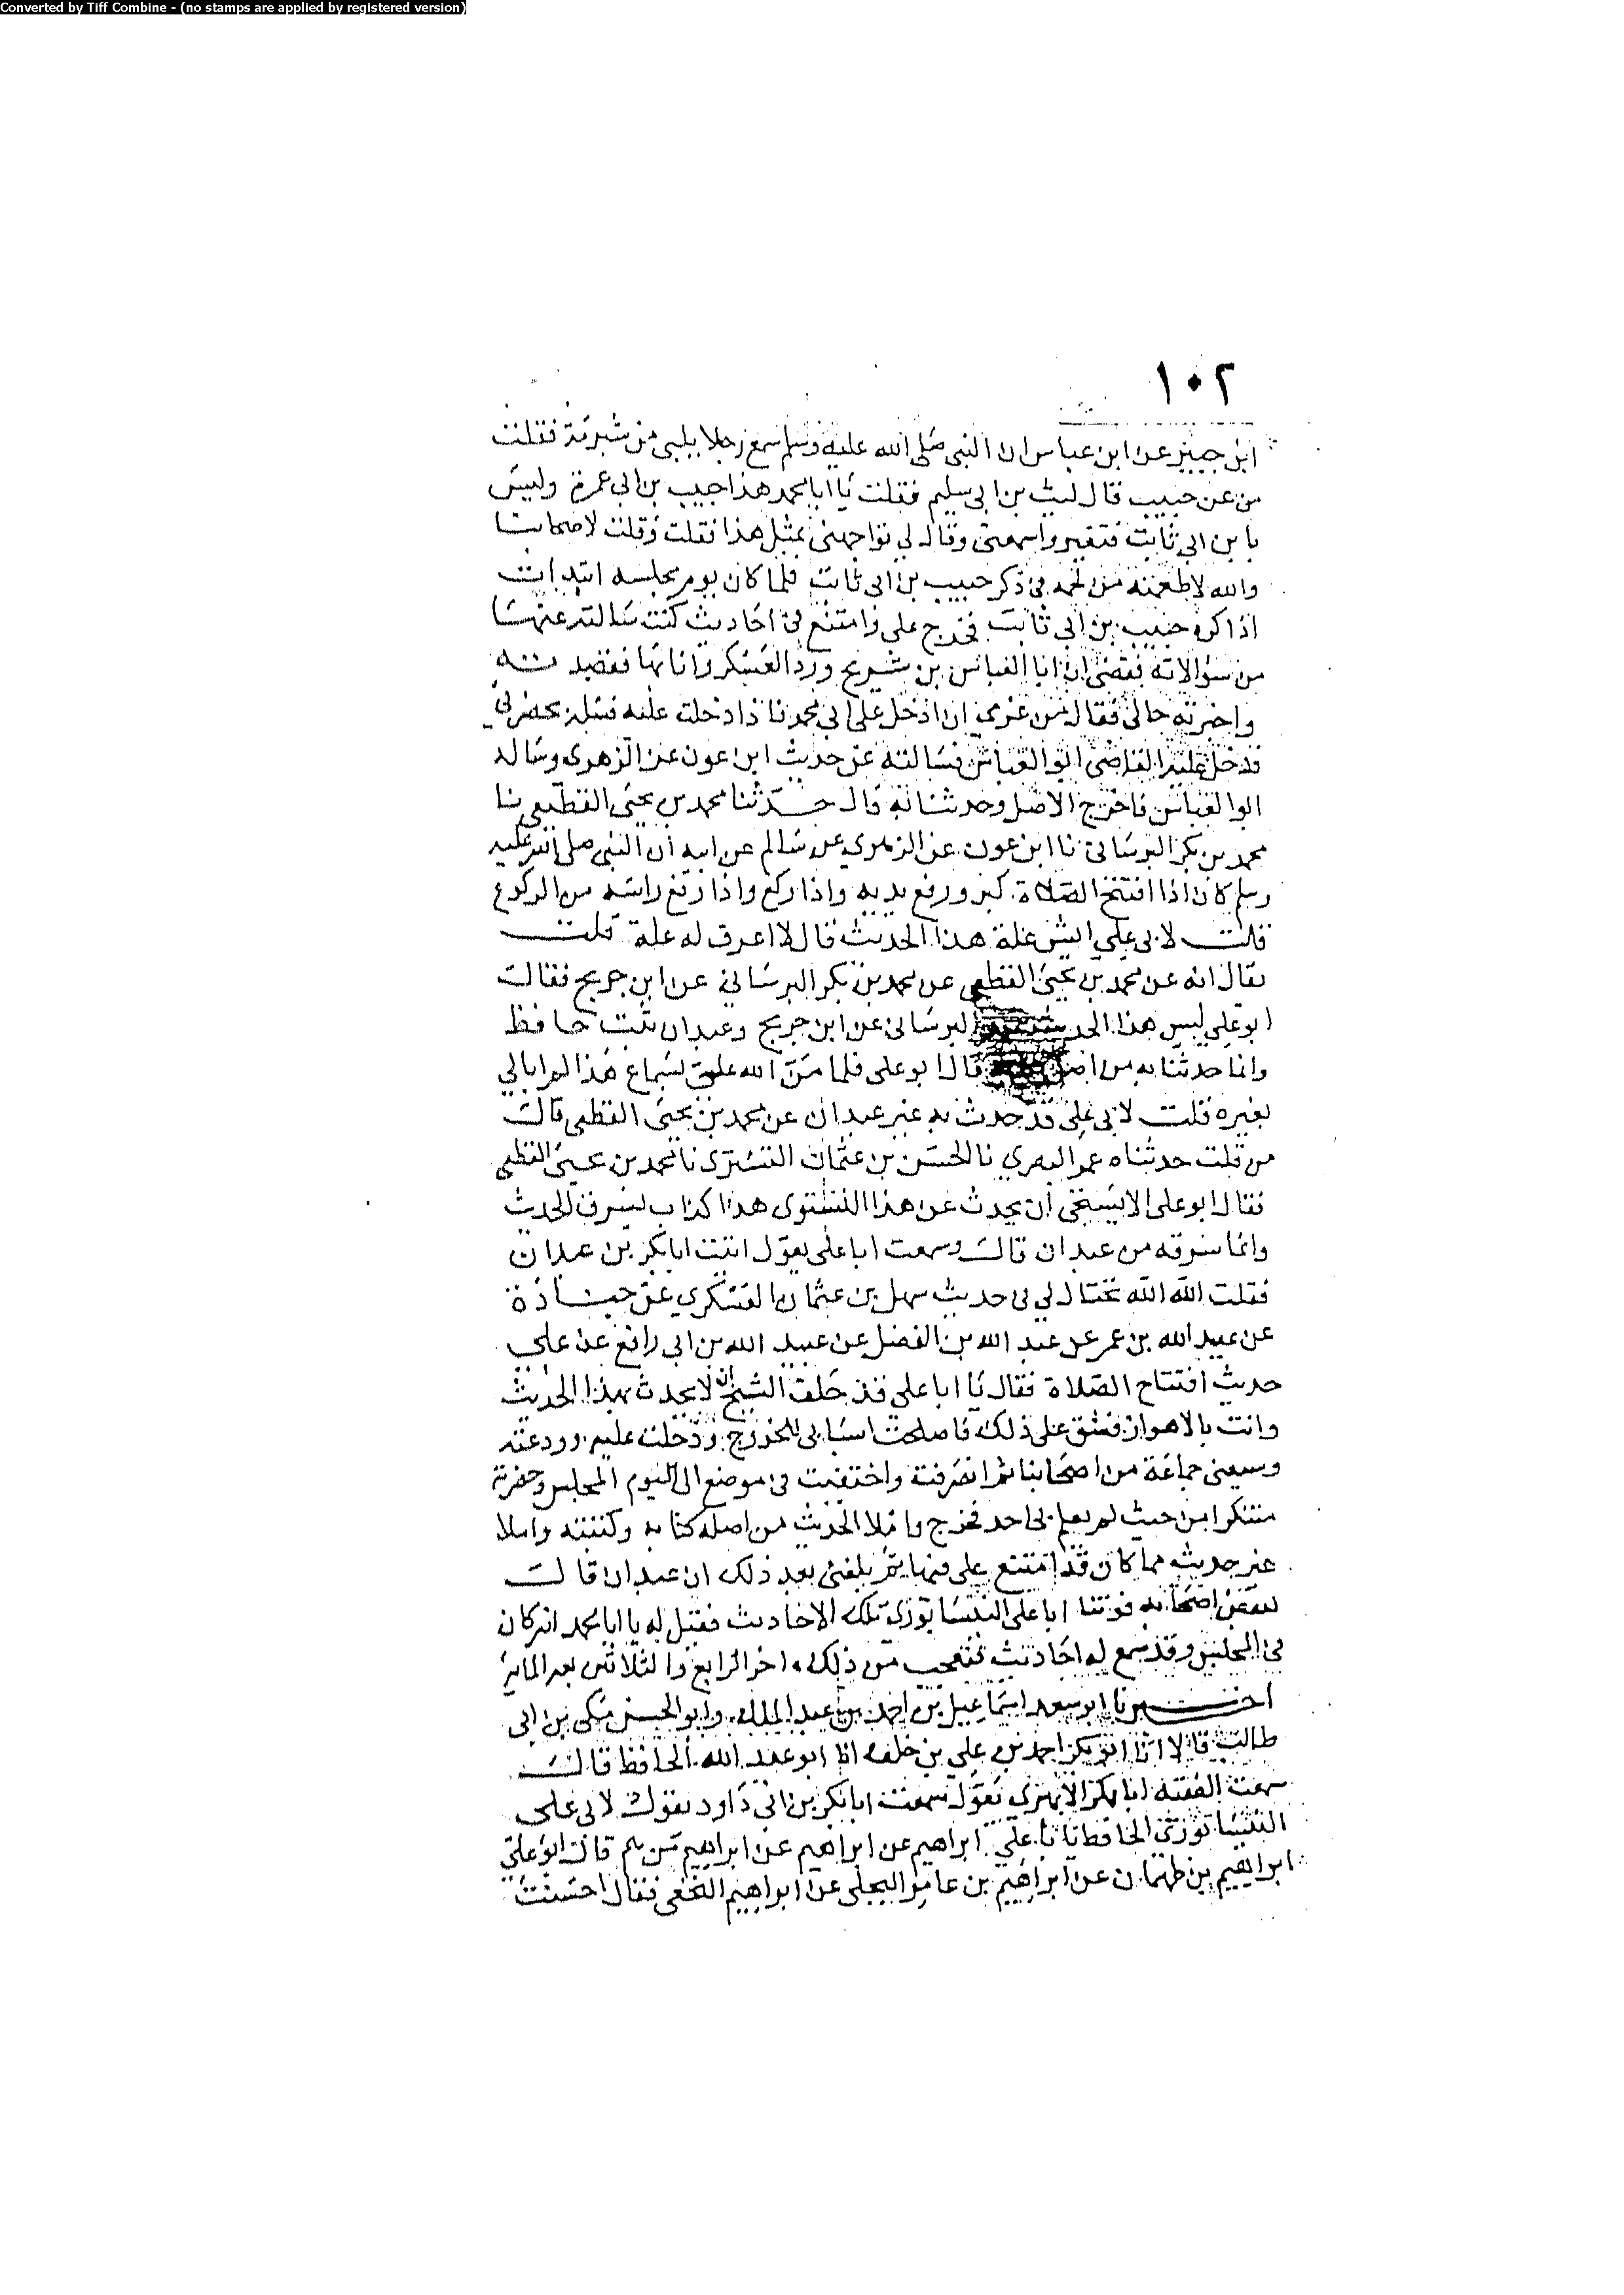 Converted by Tiff Combine - (no stamps are applied by registered version)
١٠٢
ابن جبير عن ابن عباس ان النبي صلى الله عليه وسلم سمع رجلا يلبي من شبرمة فقلت
من عن حبيب قال ليث بن ابي سليم فقلت يا ابا محمد هذا حبيب بن ابي عمرة وليس
بابن ابي ثابت فتغير واسمعني وقال لي تواجهني بمثل هذا فقلت وقلت لاصحابنا
والله لاطعمنه من لحمه في ذكر حبيب بن ابي ثابت فلما كان يوم مجلسه ابتدات
اذاكره حبيب بن ابي ثابت فخرج علي وامتنع في احاديث كنت سالته عنها
من سؤالاته فقضى ان ابا العباس بن شريح ورد العسكر وانا بها فقصدته
واخبرته حالي فقال من غدى ان ادخل على ابي محمد فاذا دخلت عليه فسله بحضرتي
فدخل عليه القاضي ابو العباس فسالته عن حديث ابن عون عن الزهري وساله
ابو العباس فاخرج الاصل وحدثنا به قال حدثنا محمد بن يحيى القطيعي نا
محمد بن بكر البرساني نا ابن عون عن الزهري عن سالم عن ابيه ان النبي صلى الله عليه
وسلم كان اذا افتتح الصلاة كبر ورفع يديه واذا ركع واذا رفع راسه من الركوع
قلت لابي علي ايش علة هذا الحديث قال لا اعرف له علة قلت
يقال انه عن محمد بن يحيى القطعي عن محمد بن بكر البرساني عن ابن جريج فقال
ابو علي ليس هذا الحديث البرساني عن ابن جريج وعبدان ثبت حافظ
وانما حدثنا به من اصل قال ابو علي فلما من الله علي بسماع هذا لم ابالي
بغيره قلت لابي علي قد حدث به غير عبدان عن محمد بن يحيى القطعي قال
من قلت حدثناه عمر البصري نا الحسن بن عثمان التستري نا محمد بن يحيى القطعي
فقال ابو علي الا يستحي ان يحدث عن هذا التستري هذا كذاب يسرق الحديث
وانما سرقه من عبدان قال وسمعت ابا علي يقول اتيت ابا بكر بن عبدان
فقلت الله الله تحتال لي في حديث سهل بن عثمان العسكري عن جنادة
عن عبيد الله بن عمر عن عبد الله بن الفضل عن عبيد الله بن ابي رافع عن علي
حديث افتتاح الصلاة فقال يا ابا علي قد حلف الشيخ ان لا يحدث بهذا الحديث
وانت بالاهواز فشق علي ذلك فاصلحت اسبابي للخروج ودخلت عليه وودعته
وسيعني جماعة من اصحابنا ثم انصرفت واختفيت في موضع الى اليوم المجلس وحضرته
متنكرا من حيث لم يعلم بي احد فخرج واملا الحديث من اصله كتابه وكتبته واملا
غير حديث مما كان قد امتنع علي فيها ثم بلغني بعد ذلك ان عبدان قال
لبعض اصحابه فوتنا ابا علي النيسابوري تلك الاحاديث فقيل له يا ابا محمد انه كان
في المجلس وقد سمع له احاديث فتعجب من ذلك اخر الرابع والثلاثين بعد المائة
اخبرنا ابو سعد اسماعيل بن احمد بن عبد الملك وابو الحسن مكي بن ابي
طالب قالا انا ابو بكر احمد بن علي بن خلف انا ابو عبد الله الحافظ قال
سمعت الفقيه ابا بكر الابهري يقول سمعت ابا بكر بن ابي داود يقول لابي علي
النيسابوري الحافظ يا با علي ابراهيم عن ابراهيم عن ابراهيم من هم قال ابو علي
ابراهيم بن طهمان عن ابراهيم بن عامر البجلي عن ابراهيم النخعي فقال احسنت